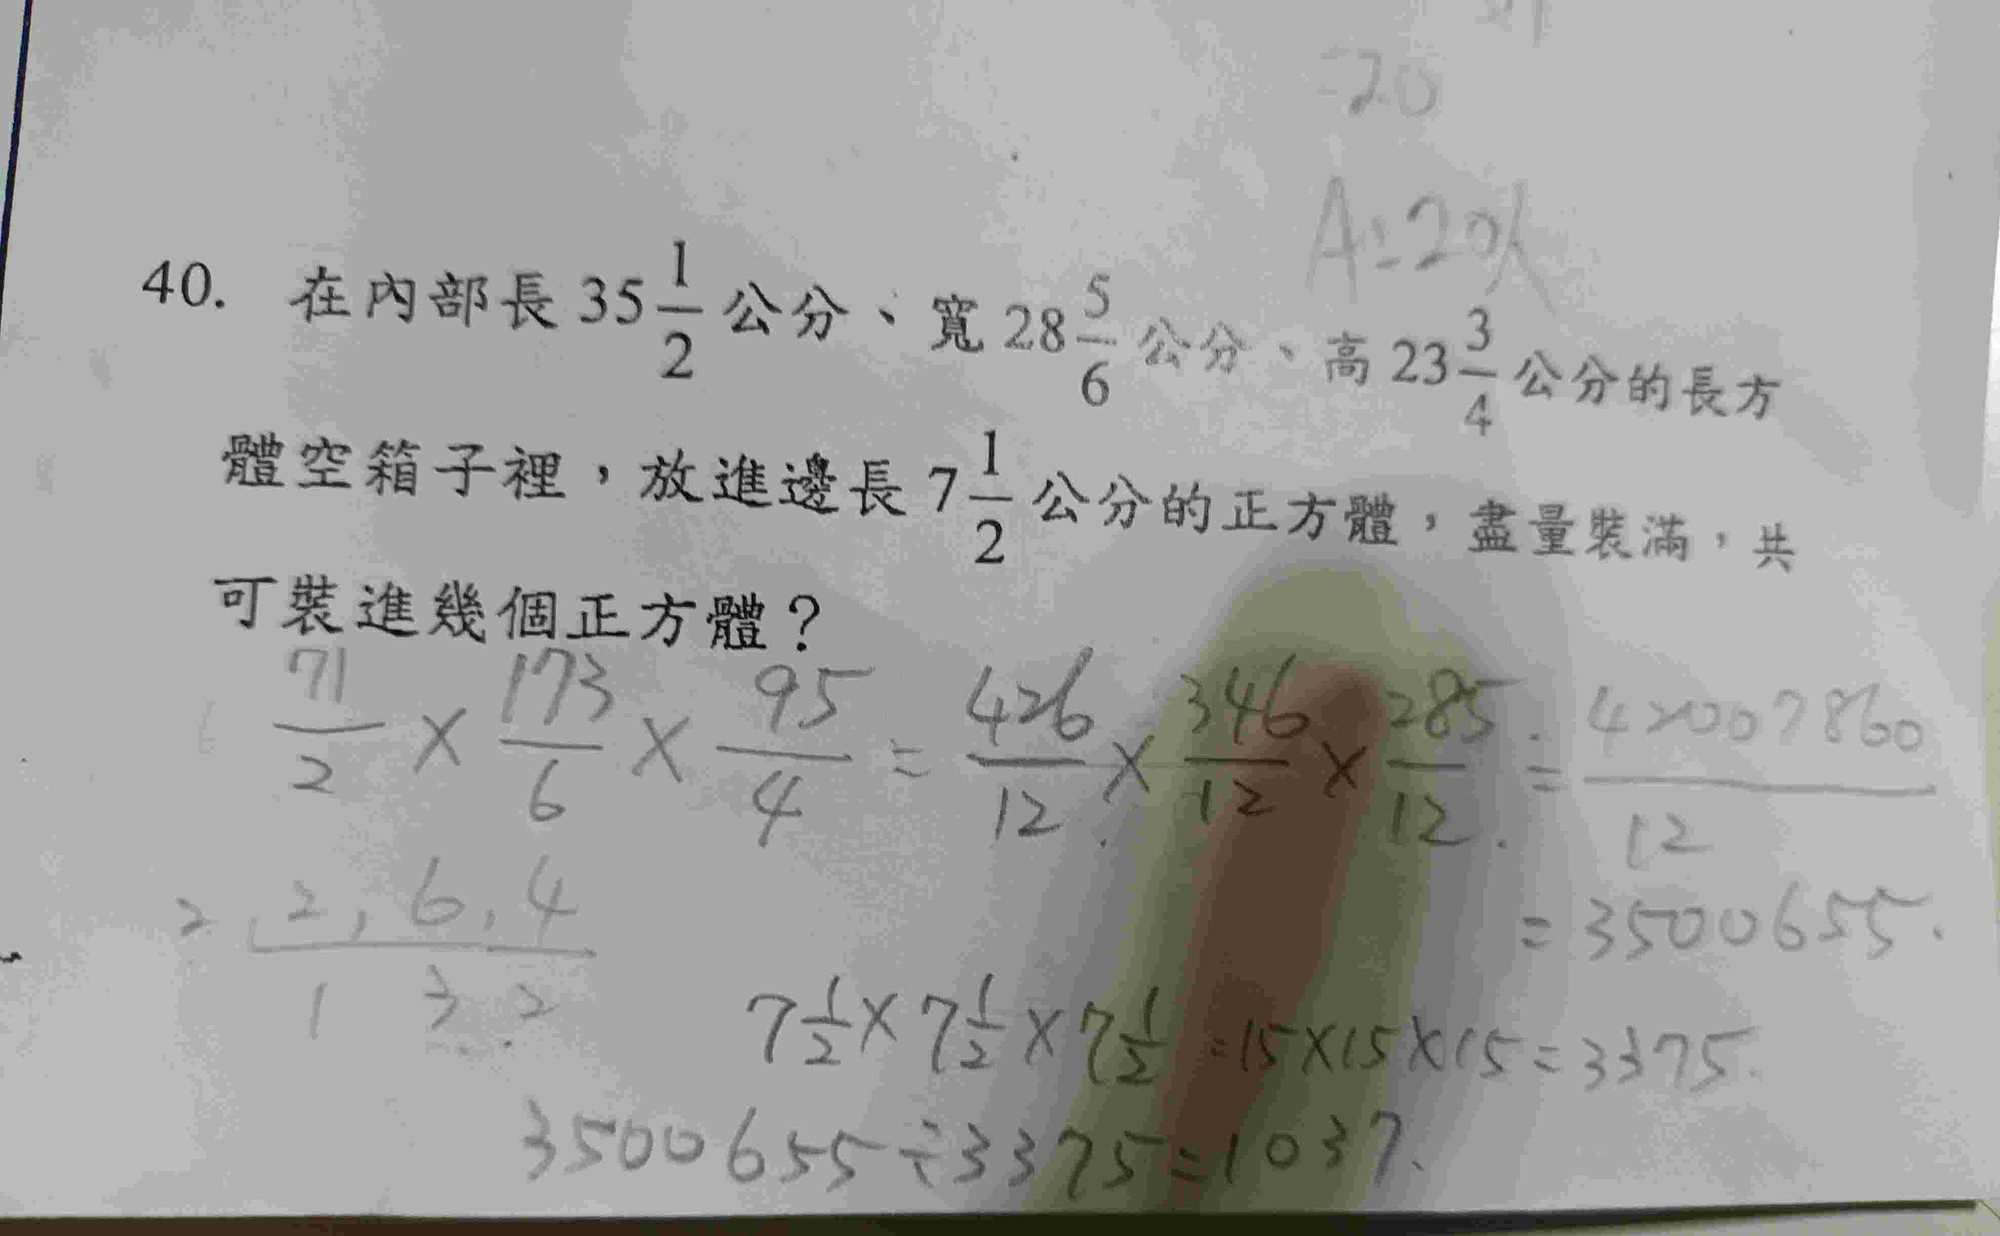 20
A:20人
40. 在內部長35 1/2 公分、寬28 5/6 公分、高23 3/4 公分的長方
體空箱子裡，放進邊長7 1/2 公分的正方體，盡量裝滿，共
可裝進幾個正方體？
71/2 × 173/6 × 95/4 = 426/12 × 346/12 × 285/12 = 42007860/12
2 2, 6, 4
= 3500655.
1 3 2
7 1/2 × 7 1/2 × 7 1/2 = 15×15×15 = 3375.
3500655÷3375=1037.